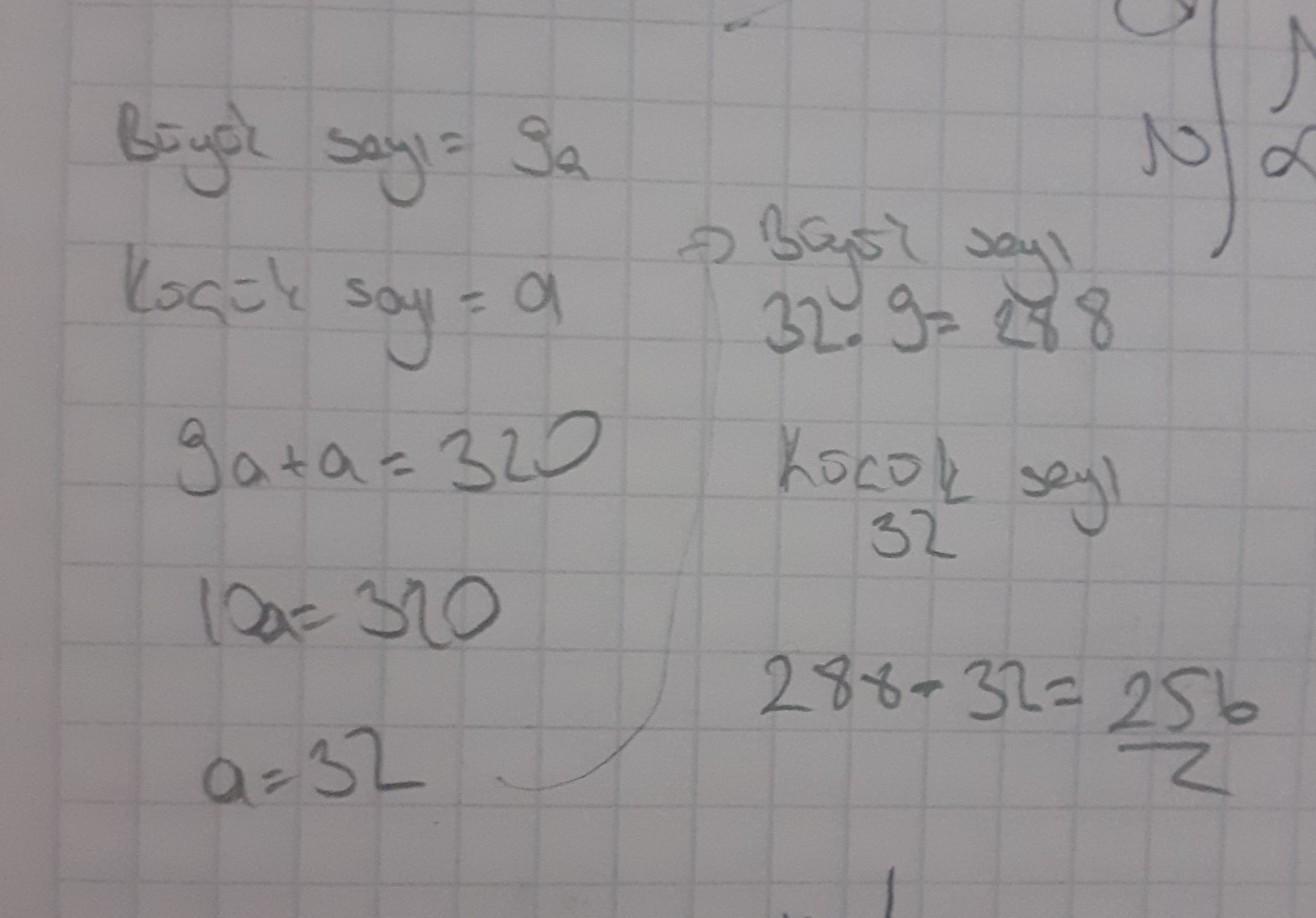 Büyük sayı = 9a
Küçük sayı = a
9a+a = 320
10a = 320
a = 32
⇒ Büyük sayı
32.9 = 288
Kücük sayı
32
288 - 32 = 256
N